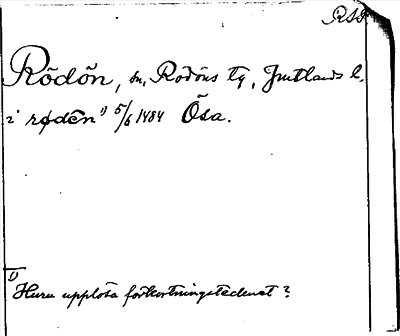 RAÖ
Rödön, sn, Rödöns tg, Jmtlands l.
i rødēn¹⁾ 5/6 1484 Ösa.
1) Huru upplösa förkortningstecknet?